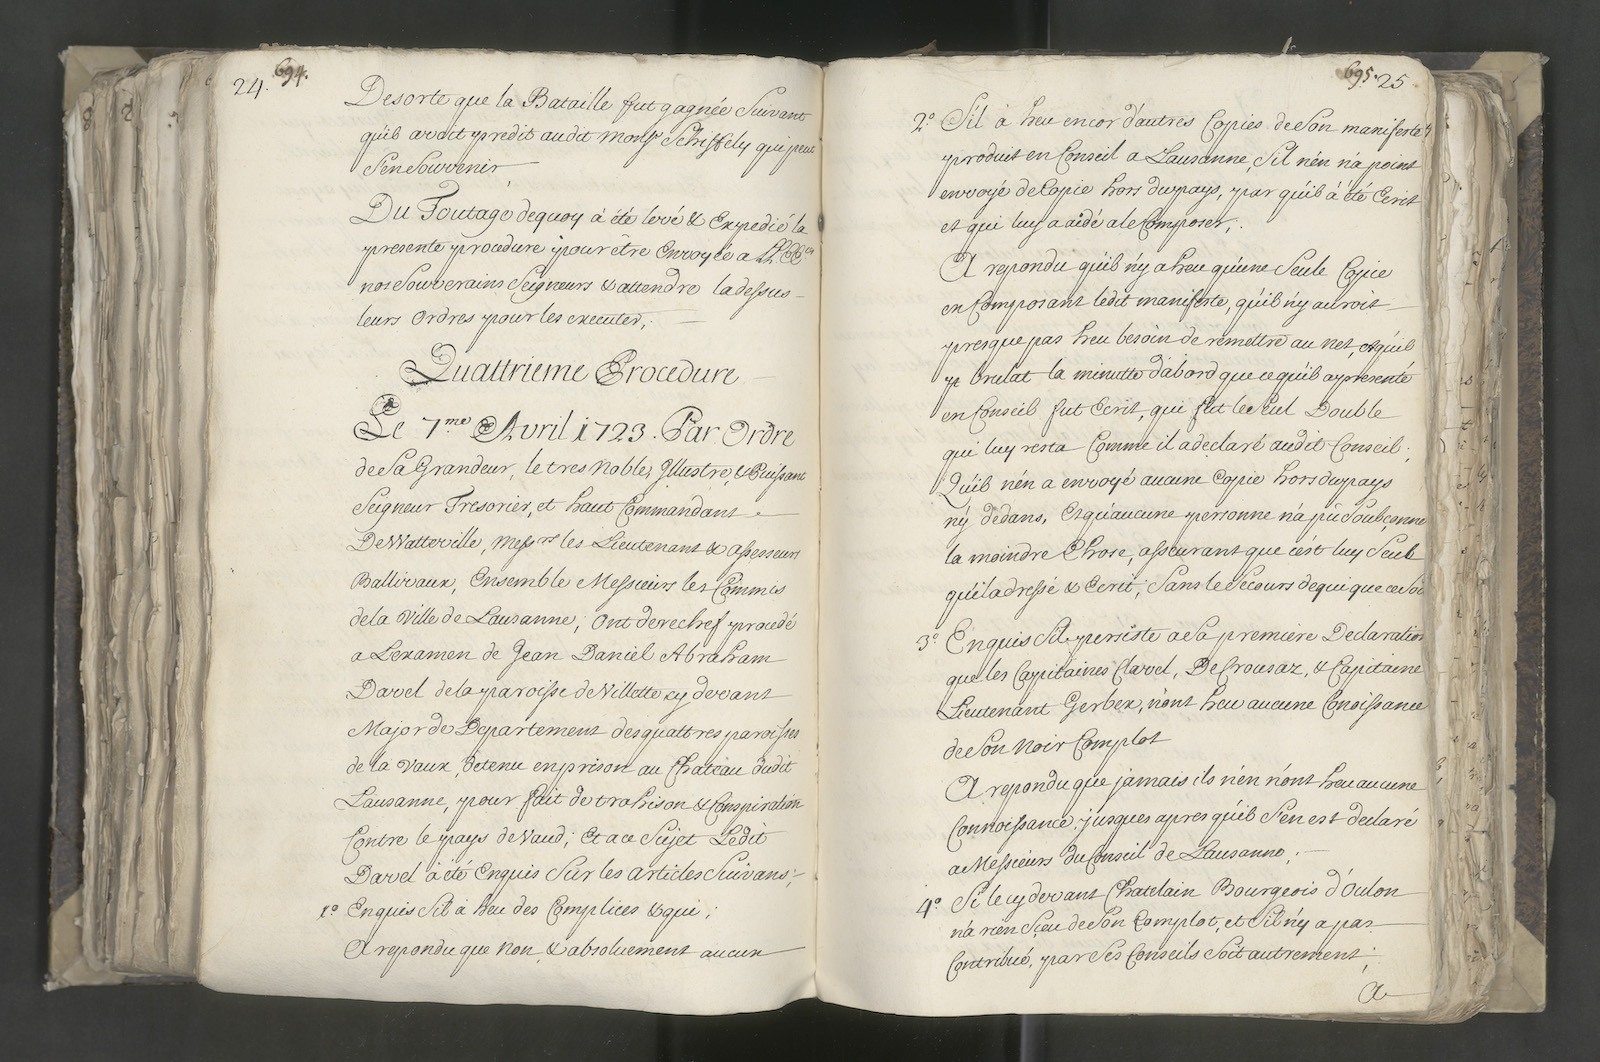 24. 694.
Desorte que la Bataille fut gagnée Suivant
qu'il avoit predit audit Monsr Schiffely qui peut
S'en Souvenir
Du Toutage dequoy à été levé & Expedié la
presente procedure pour être Envoyée a LL.EEces
nos Souverains Seigneurs & attendre ladessus
leurs Ordres pour les executer;
Quattrieme Procedure
Le 7me Avril 1723. Par Ordre
de Sa Grandeur, le tres Noble, Illustre, & Puissant
Seigneur Tresorier, et haut Commandant
De Watteville, Messrs les Lieutenant & assesseurs
Ballivaux, Ensemble Messieurs les Commis
de la Ville de Lausanne, Ont derechef procedé
a Lexamen de Jean Daniel Abraham
Davel de la paroisse de Villette cy devant
Major de Departement des quattres paroisses
de la Vaux, detenu en prison au Chateau dudit
Lausanne, pour fait de trahison & Conspiration
Contre le pays de Vaud; Et a ce Sujet Ledit
Davel à été Enquis Sur les articles Suivans;
1° Enquis Sil à heu des Complices & qui;
A repondu que Non, & absoluement aucun
695. 25
2° S'il à heu encor d'autres Copies de Son manifeste
produit en Conseil a Lausanne, Sil n'en n'a point
envoyé de Copie hors du pays, par qu'il à été Ecrit
et qui luy a aidé a le Composer,
A repondu qu'il n'y a heu qu'une Seule Copie
en Composant ledit manifeste, qu'il n'y auroit
presque pas heu besoin de remettre au net, et qu'il
brulat la minutte d'abord que ce qu'il a presenté
en Conseil fut Ecrit, qui fut le Seul Double
qui luy resta Comme il a declaré audit Conseil;
Qu'il n'en a envoyé aucune Copie hors du pays
n'y dedans, Et qu'aucune personne n'a pu Soubçonner
la moindre Chose, asseurant que c'est luy Seul
qui l'a dressé & Ecrit, Sans le Secours de qui que ce Soit
3° Enquis Sil persiste a Sa premiere Declaration
que les Capitaines Clavel, De Crousaz, & Capitaine
Lieutenant Gerbex, n'ont heu aucune Conoissance
de Son Noir Complot
A repondu que jamais ils n'en n'ont heu aucune
Connoissance jusques apres qu'il S'en est declaré
a Messieurs du Conseil de Lausanne;
4° Si le cy devant Chatelain Bourgeois d'Oulon
n'a rien Sceu de Son Complot, et Sil n'y a pas
Contribué, par Ses Conseils Soit autrement;
A